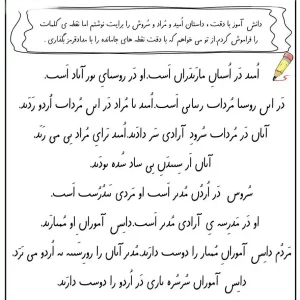 دانش آموز با دقت ، داستان اُمید و مُراد و سُروش را برایت نوشتم اما نقطه ی کلمات
را فراموش کردم از تو می خواهم که با دقت نقطه های جامانده را با مدادقرمز بگذاری .
اُمید دَر اُستانِ مازندَران اَست.او دَر روستایِ نور آباد اَست.
دَر این روستا مُردابِ زیبایی اَست.اُمید با مُراد دَر این مُرداب اُردو زَدَند.
آنان دَر مُرداب سُرودِ آزادی سَر دادَند.اُمید تَرایِ مُراد بی می زَند.
آنان اَز سیستان بی ساد شُده بودَند.
سُروس دَر اُردُن مُدیر اَست او مَردی تَندُرُست اَست.
او دَر مَدرِسه یِ آزادی مُدیر اَست. دانِس آموزانِ او مُمتازَند.
مَردُم دانِس آموزانِ مُمتاز را دوست دارَند.مُدیر آنان را روزِ سَنبه به اُردو می بَرَد.
دانِس آموزان سُرسُره بازی دَر اُردو را دوست دارَند.